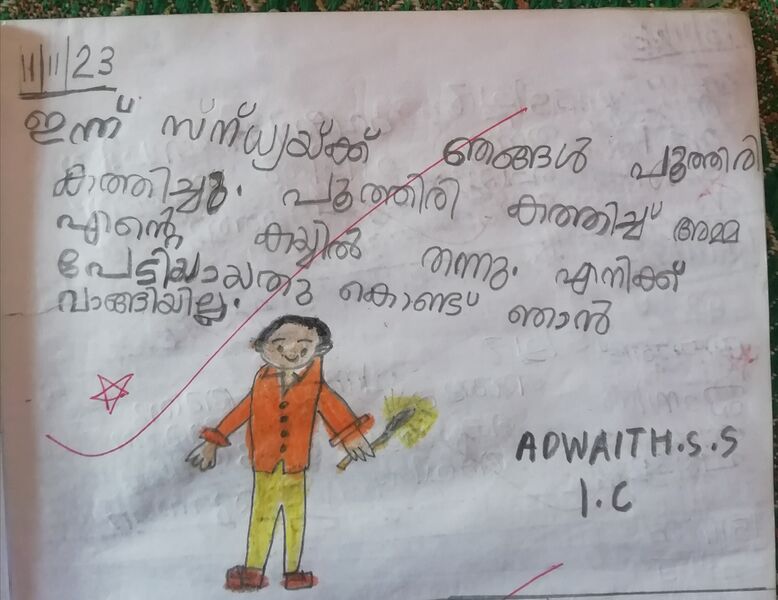 11/11/23
ഇന്ന് സ്ന്ധ്യയ്ക്ക് ഞങ്ങൾ പൂത്തിരി
കാത്തിച്ചു. പൂത്തിരി കത്തിച്ച് അമ്മ
എൻ്റെ കയ്യിൽ തന്നു. എനിക്ക്
പേടിയായതു കൊണ്ട് ഞാൻ
വാങ്ങിയില്ല.
ADWAITH.S.S
1.C